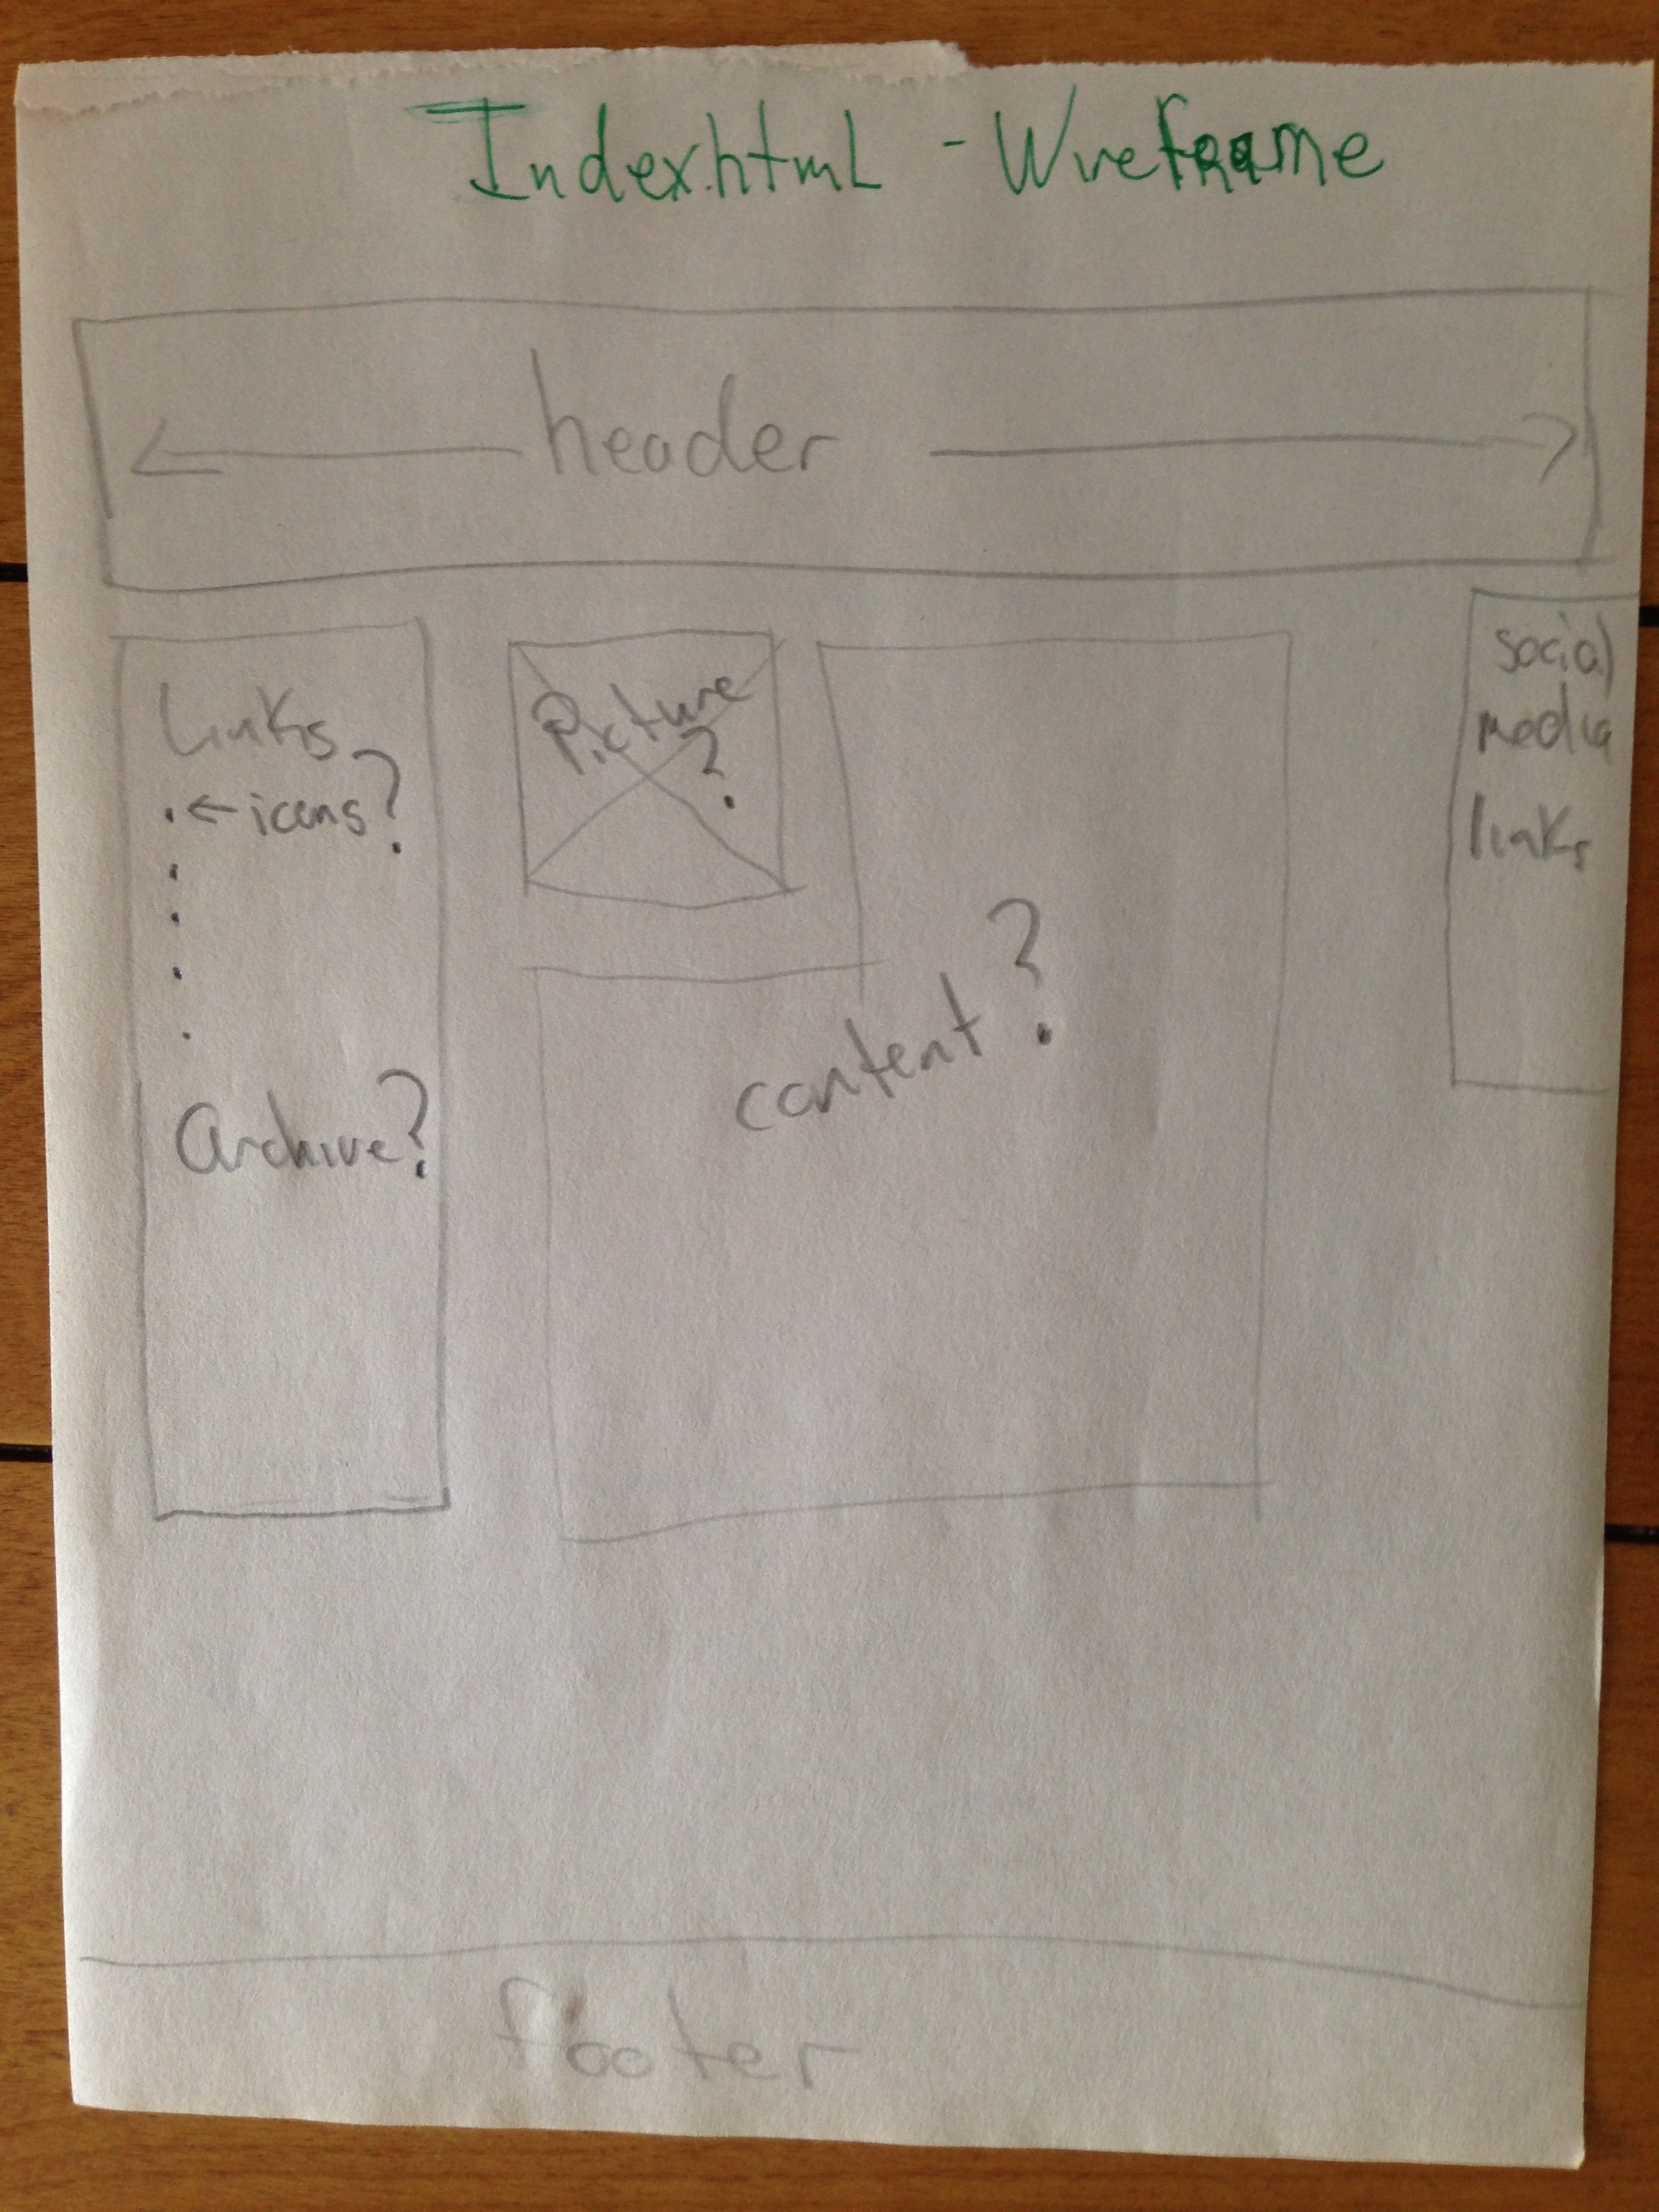 Index.html - Wireframe
header
Links
icons?
Archive?
Picture
?
content?
social
media
links
footer